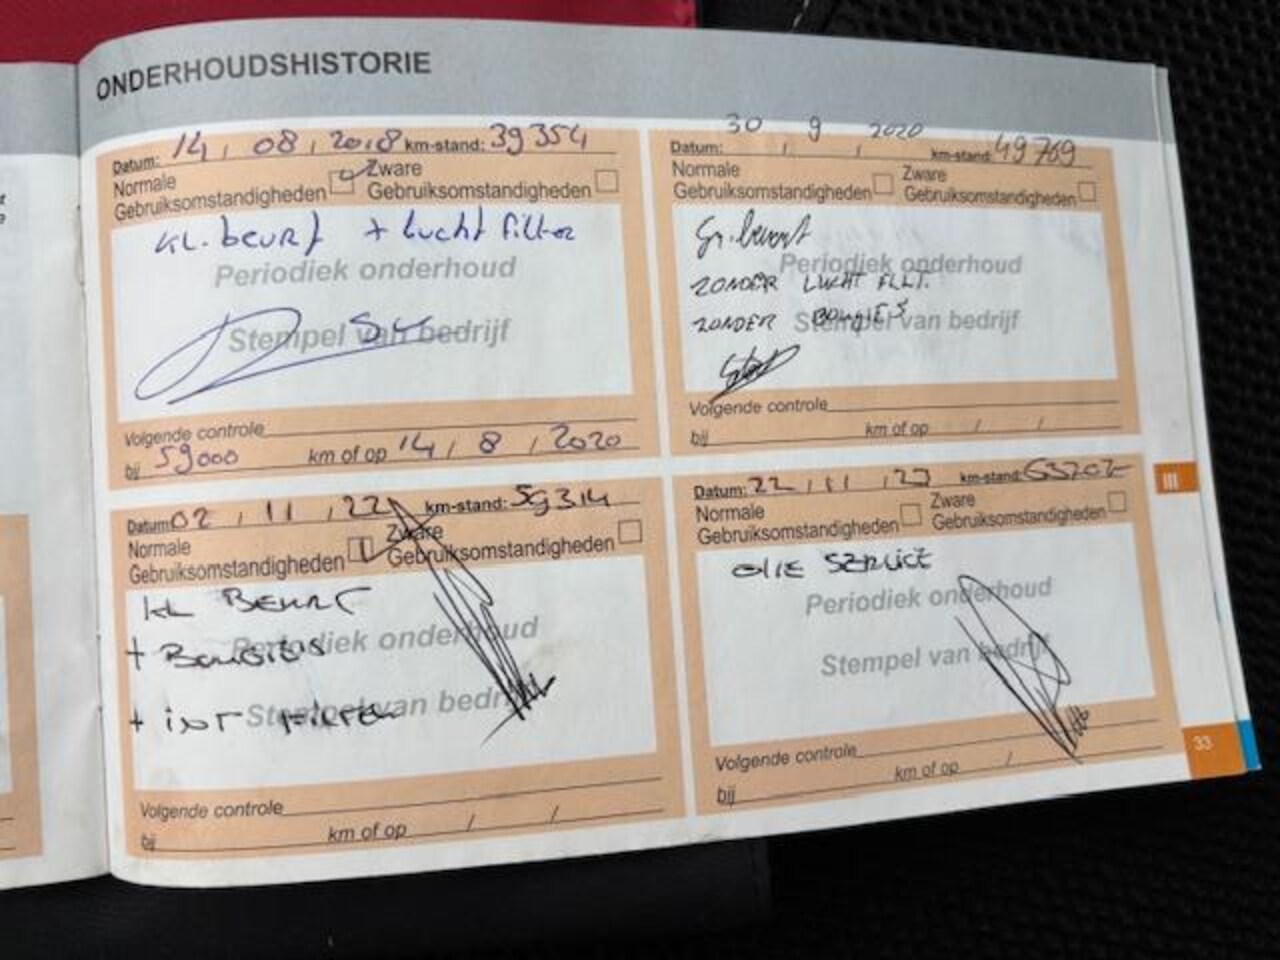 ONDERHOUDSHISTORIE
Datum: 14 / 08 / 2018 km-stand: 39354
Normale Zware
Gebruiksomstandigheden Gebruiksomstandigheden
KL. beurt + lucht filter
Periodiek onderhoud
Stempel van bedrijf
Volgende controle
bij 59000 km of op 14 / 8 / 2020
Datum: 30 / 9 / 2020 km-stand: 49769
Normale Zware
Gebruiksomstandigheden Gebruiksomstandigheden
Gr. beurt
Periodiek onderhoud
ZONDER LUCHT FILT.
ZONDER BOUGIES
Stempel van bedrijf
Volgende controle
bij km of op / /
Datum: 02 / 11 / 22 km-stand: 59314
Normale Zware
Gebruiksomstandigheden Gebruiksomstandigheden
KL BEURT
+ BOUGIES
Periodiek onderhoud
+ INT FILTER
Stempel van bedrijf
Volgende controle
bij km of op / /
Datum: 22 / 11 / 23 km-stand:
Normale Zware
Gebruiksomstandigheden Gebruiksomstandigheden
OLIE SERVICE
Periodiek onderhoud
Stempel van bedrijf
Volgende controle
bij km of op /
III
33